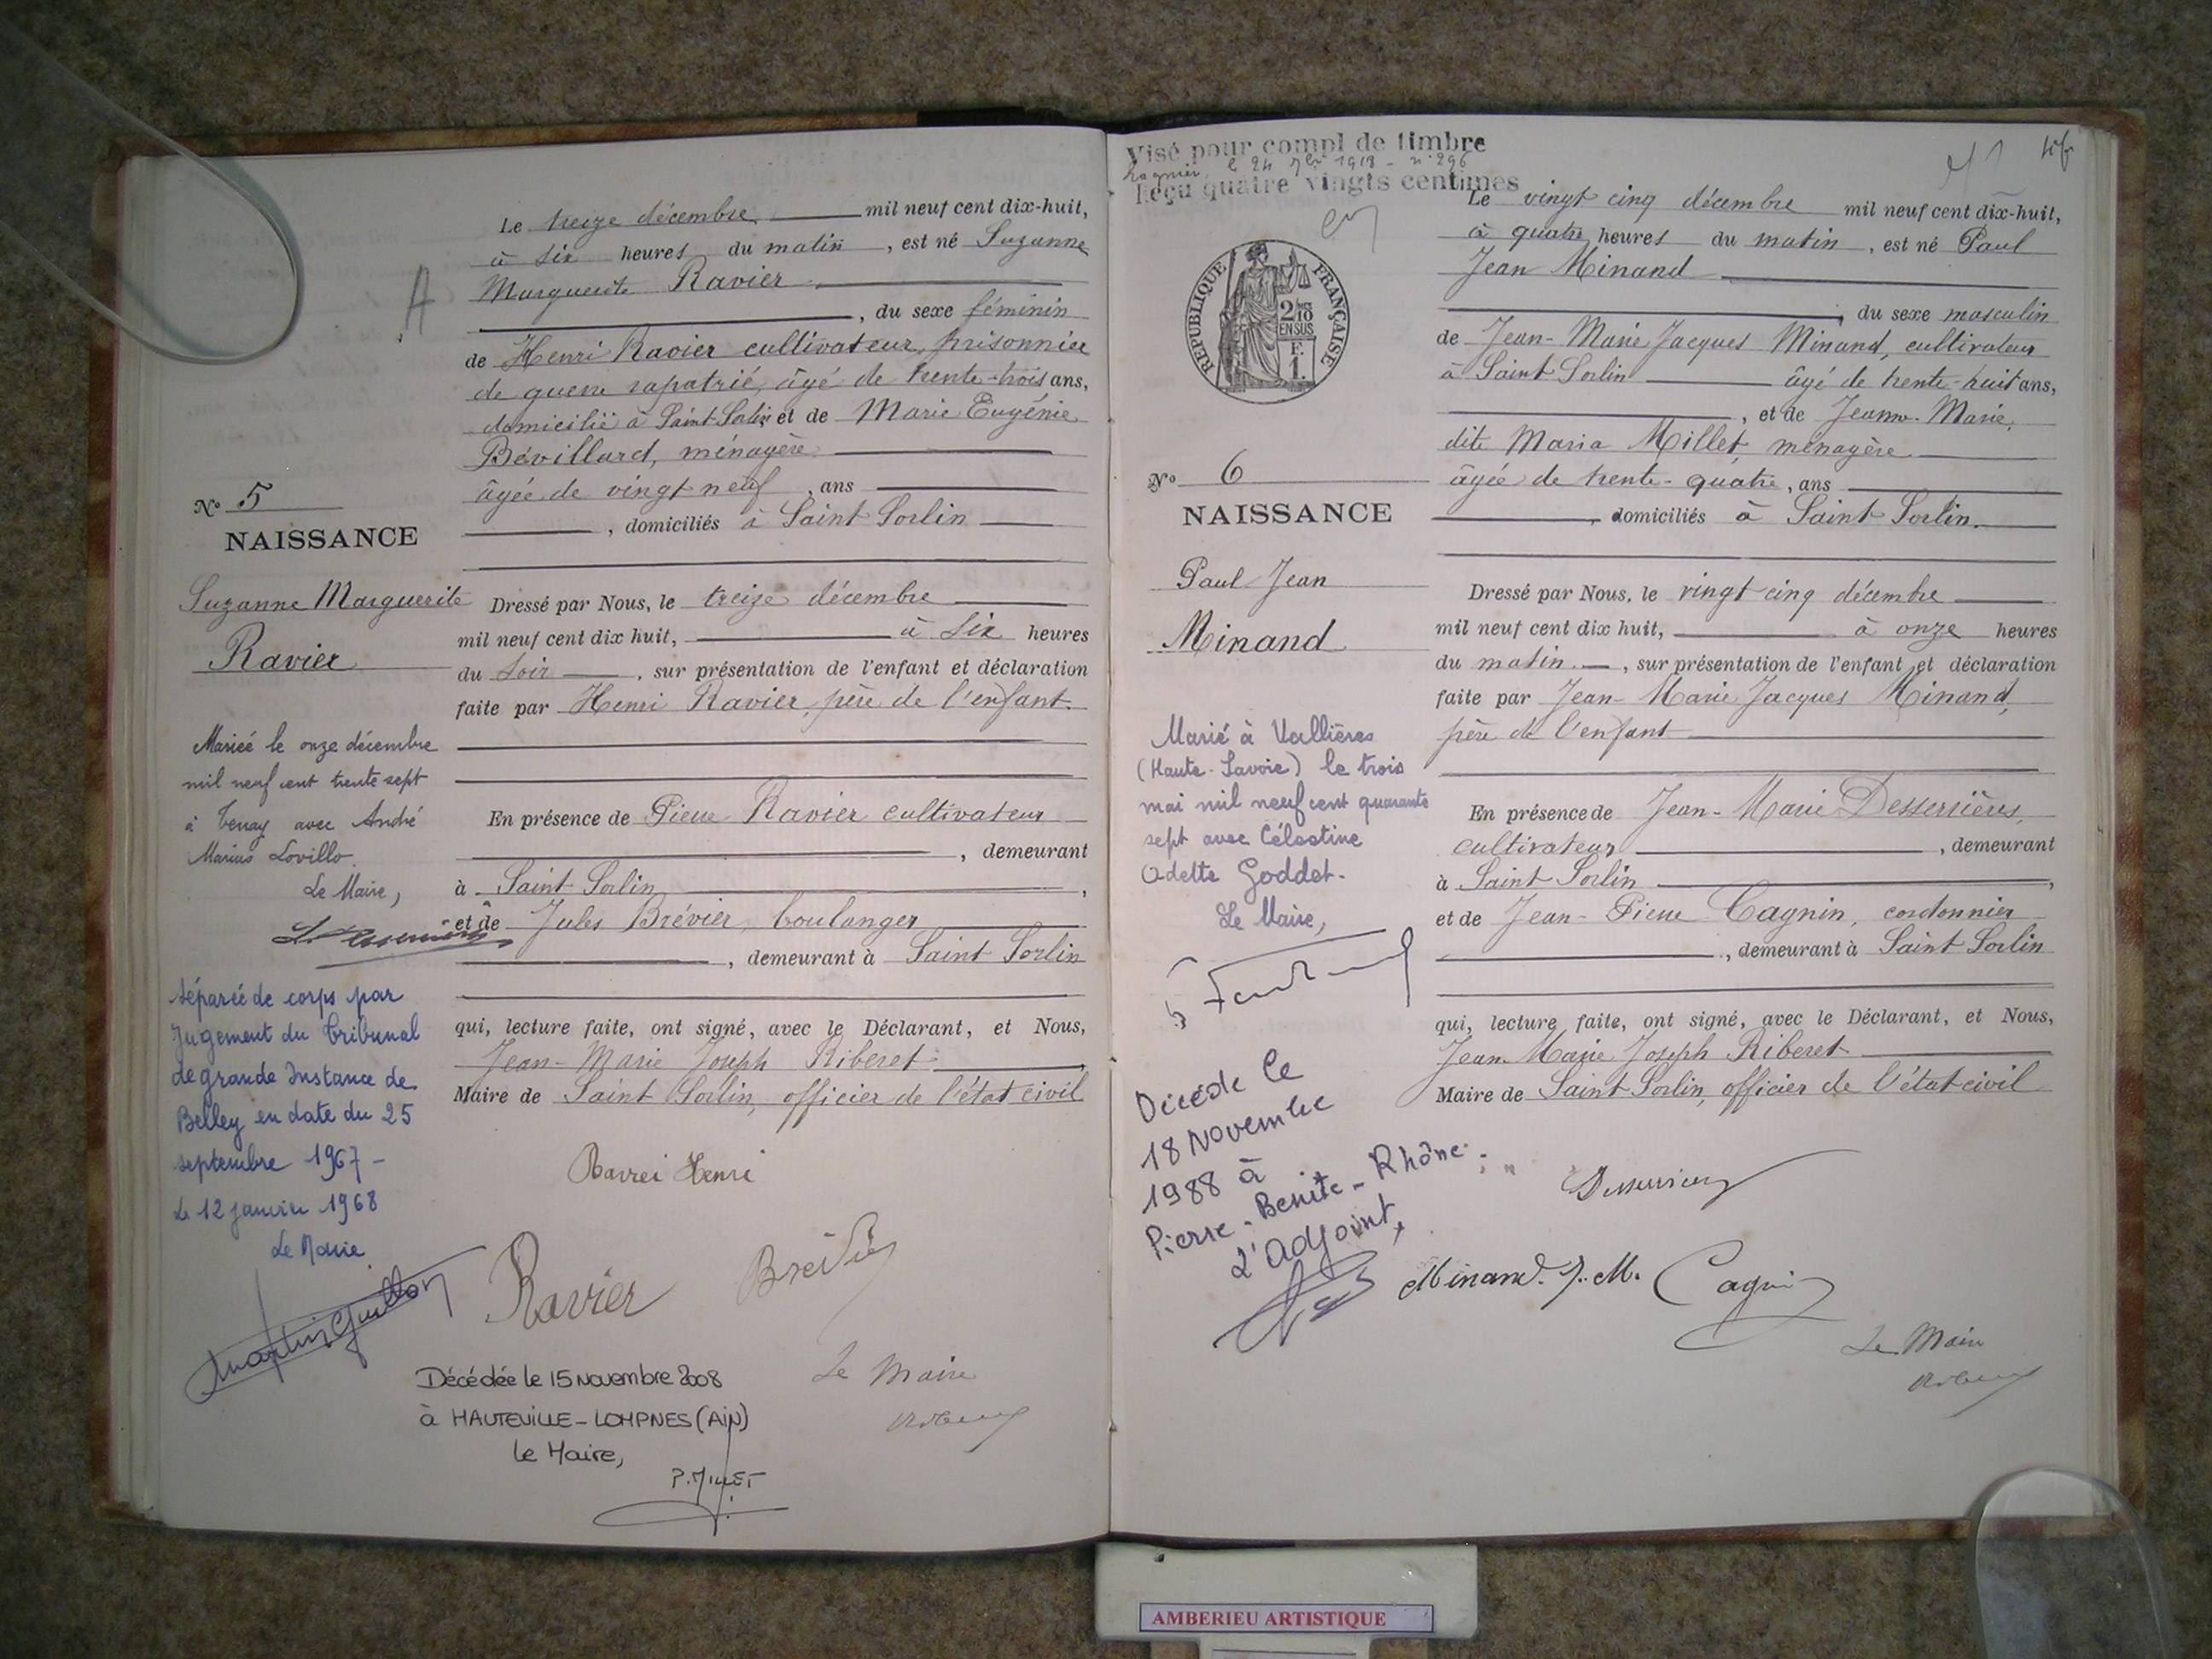 Le treize décembre mil neuf cent dix-huit,
à six heures du matin, est né Suzanne
Marguerite Ravier
, du sexe féminin
de Henri Ravier cultivateur, prisonnier
de guerre rapatrié, âgé de trente-trois ans,
domicilié à Saint Sorlin et de Marie Eugénie
Bévillard, ménagère
âgée de vingt neuf, ans
, domiciliés à Saint Sorlin
A
No 5
NAISSANCE
Suzanne Marguerite
Ravier
Dressé par Nous, le treize décembre
mil neuf cent dix huit, à six heures
du soir, sur présentation de l'enfant et déclaration
faite par Henri Ravier, père de l'enfant.
En présence de Pierre Ravier cultivateur
, demeurant
à Saint Sorlin,
et de Jules Brévier, boulanger
, demeurant à Saint Sorlin
qui, lecture faite, ont signé, avec le Déclarant, et Nous,
Jean-Marie Joseph Riberet
Maire de Saint Sorlin, officier de l'état civil
Mariée le onze décembre
mil neuf cent trente sept
à Tenay avec André
Marius Lovillo.
Le Maire,
Séparée de corps par
Jugement du Tribunal
de grande Instance de
Belley en date du 25
septembre 1967 -
Le 12 janvier 1968
Le Maire
Ravier Henri
Ravier
Brévier
Le Maire
Décédée le 15 novembre 2008
à HAUTEVILLE-LOMPNES (AIN)
Le Maire,
P. MILLET
Visé pour compl de timbre
Lagnieu, le 24 7bre 1918 - n° 296
Reçu quatre vingts centimes
RÉPUBLIQUE FRANÇAISE
2/10
EN SUS
F.
1.
Le vingt cinq décembre mil neuf cent dix-huit,
à quatre heures du matin, est né Paul
Jean Minand
, du sexe masculin
de Jean-Marie Jacques Minand, cultivateur
à Saint Sorlin âgé de trente-huit ans,
, et de Jeanne-Marie,
dite Maria Millet, ménagère
âgée de trente-quatre, ans
, domiciliés à Saint Sorlin.
No 6
NAISSANCE
Paul Jean
Minand
Dressé par Nous, le vingt cinq décembre
mil neuf cent dix huit, à onze heures
du matin, sur présentation de l'enfant et déclaration
faite par Jean-Marie Jacques Minand,
père de l'enfant
En présence de Jean-Marie Desserrières,
cultivateur, demeurant
à Saint Sorlin,
et de Jean-Pierre Cagnin, cordonnier
, demeurant à Saint Sorlin
qui, lecture faite, ont signé, avec le Déclarant, et Nous,
Jean Marie Joseph Riberet
Maire de Saint Sorlin, officier de l'état civil
Marié à Vallières
(Haute-Savoie) le trois
mai mil neuf cent quarante
sept avec Célestine
Odette Goddet.
Le Maire,
Décédé le
18 Novembre
1988 à
Pierre-Bénite-Rhône
L'adjoint,
Minand. J. M.
Cagnin
Le Maire
AMBERIEU ARTISTIQUE